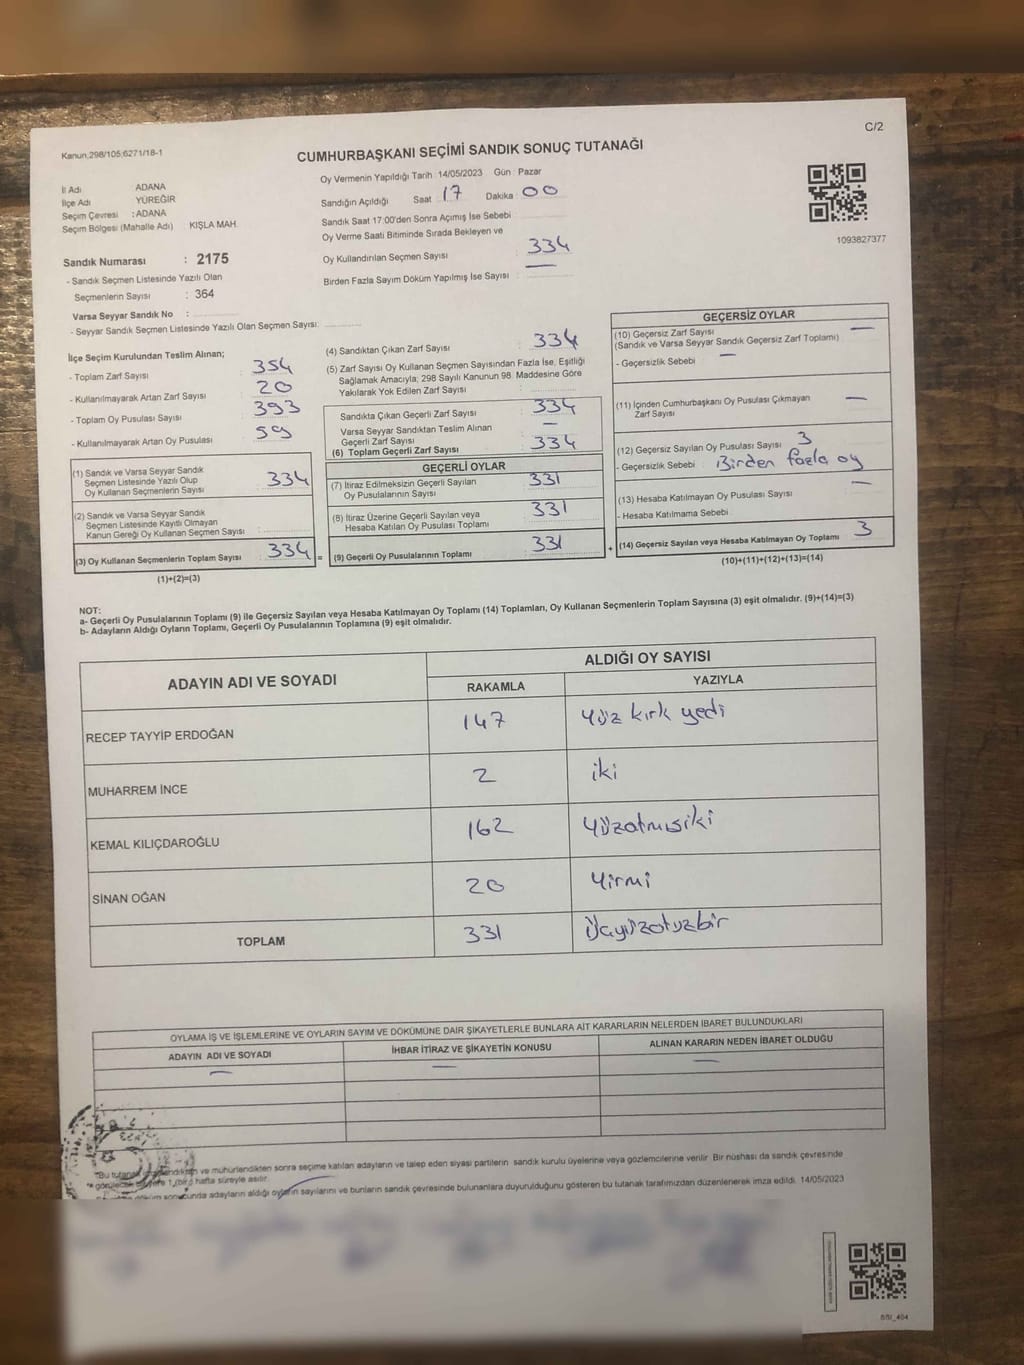 Kanun,298/105;6271/18-1
C/2
CUMHURBAŞKANI SEÇİMİ SANDIK SONUÇ TUTANAĞI
İl Adı ADANA
İlçe Adı YÜREĞİR
Seçim Çevresi :ADANA
Seçim Bölgesi (Mahalle Adı) KIŞLA MAH.
Oy Vermenin Yapıldığı Tarih :14/05/2023 Gün : Pazar
Sandığın Açıldığı Saat : 17 Dakika : 00
Sandık Saat 17:00'den Sonra Açımış İse Sebebi
Oy Verme Saati Bitiminde Sırada Bekleyen ve
Oy Kullandırılan Seçmen Sayısı : 334
Birden Fazla Sayım Döküm Yapılmış İse Sayısı : —
1093827377
Sandık Numarası : 2175
- Sandık Seçmen Listesinde Yazılı Olan
Seçmenlerin Sayısı : 364
Varsa Seyyar Sandık No :
- Seyyar Sandık Seçmen Listesinde Yazılı Olan Seçmen Sayısı:
İlçe Seçim Kurulundan Teslim Alınan;
- Toplam Zarf Sayısı : 354
- Kullanılmayarak Artan Zarf Sayısı : 20
- Toplam Oy Pusulası Sayısı : 393
- Kullanılmayarak Artan Oy Pusulası : 59
(1) Sandık ve Varsa Seyyar Sandık
Seçmen Listesinde Yazılı Olup
Oy Kullanan Seçmenlerin Sayısı : 334
(2) Sandık ve Varsa Seyyar Sandık
Seçmen Listesinde Kayıtlı Olmayan
Kanun Gereği Oy Kullanan Seçmen Sayısı :
(3) Oy Kullanan Seçmenlerin Toplam Sayısı : 334 =
(1)+(2)=(3)
(4) Sandıktan Çıkan Zarf Sayısı : 334
(5) Zarf Sayısı Oy Kullanan Seçmen Sayısından Fazla İse, Eşitliği
Sağlamak Amacıyla; 298 Sayılı Kanunun 98. Maddesine Göre
Yakılarak Yok Edilen Zarf Sayısı :
Sandıkta Çıkan Geçerli Zarf Sayısı : 334
Varsa Seyyar Sandıktan Teslim Alınan
Geçerli Zarf Sayısı : —
(6) Toplam Geçerli Zarf Sayısı : 334
GEÇERLİ OYLAR
(7) İtiraz Edilmeksizin Geçerli Sayılan
Oy Pusulalarının Sayısı : 331
(8) İtiraz Üzerine Geçerli Sayılan veya
Hesaba Katılan Oy Pusulası Toplamı : 331
(9) Geçerli Oy Pusulalarının Toplamı : 331 +
GEÇERSİZ OYLAR
(10) Geçersiz Zarf Sayısı : —
(Sandık ve Varsa Seyyar Sandık Geçersiz Zarf Toplamı)
- Geçersizlik Sebebi : —
(11) İçinden Cumhurbaşkanı Oy Pusulası Çıkmayan
Zarf Sayısı : —
(12) Geçersiz Sayılan Oy Pusulası Sayısı : 3
- Geçersizlik Sebebi : Birden fazla oy
(13) Hesaba Katılmayan Oy Pusulası Sayısı : —
- Hesaba Katılmama Sebebi :
(14) Geçersiz Sayılan veya Hesaba Katılmayan Oy Toplamı : 3
(10)+(11)+(12)+(13)=(14)
NOT:
a- Geçerli Oy Pusulalarının Toplamı (9) ile Geçersiz Sayılan veya Hesaba Katılmayan Oy Toplamı (14) Toplamları, Oy Kullanan Seçmenlerin Toplam Sayısına (3) eşit olmalıdır. (9)+(14)=(3)
b- Adayların Aldığı Oyların Toplamı, Geçerli Oy Pusulalarının Toplamına (9) eşit olmalıdır.
ADAYIN ADI VE SOYADI
ALDIĞI OY SAYISI
RAKAMLA YAZIYLA
RECEP TAYYİP ERDOĞAN 147 yüz kırk yedi
MUHARREM İNCE 2 iki
KEMAL KILIÇDAROĞLU 162 yüzatmışiki
SİNAN OĞAN 20 yirmi
TOPLAM 331 üçyüzotuzbir
OYLAMA İŞ VE İŞLEMLERİNE VE OYLARIN SAYIM VE DÖKÜMÜNE DAİR ŞİKAYETLERLE BUNLARA AİT KARARLARIN NELERDEN İBARET BULUNDUKLARI
ADAYIN ADI VE SOYADI İHBAR İTİRAZ VE ŞİKAYETİN KONUSU ALINAN KARARIN NEDEN İBARET OLDUĞU
— — —
*Bu ve mühürlendikten sonra seçime katılan adayların ve talep eden siyasi partilerin sandık kurulu üyelerine veya gözlemcilerine verilir. Bir nüshası da sandık çevresinde
hafta süreyle asılır.
adayların aldığı oyların sayılarını ve bunların sandık çevresinde bulunanlara duyurulduğunu gösteren bu tutanak tarafımızdan düzenlenerek imza edildi. 14/05/2023